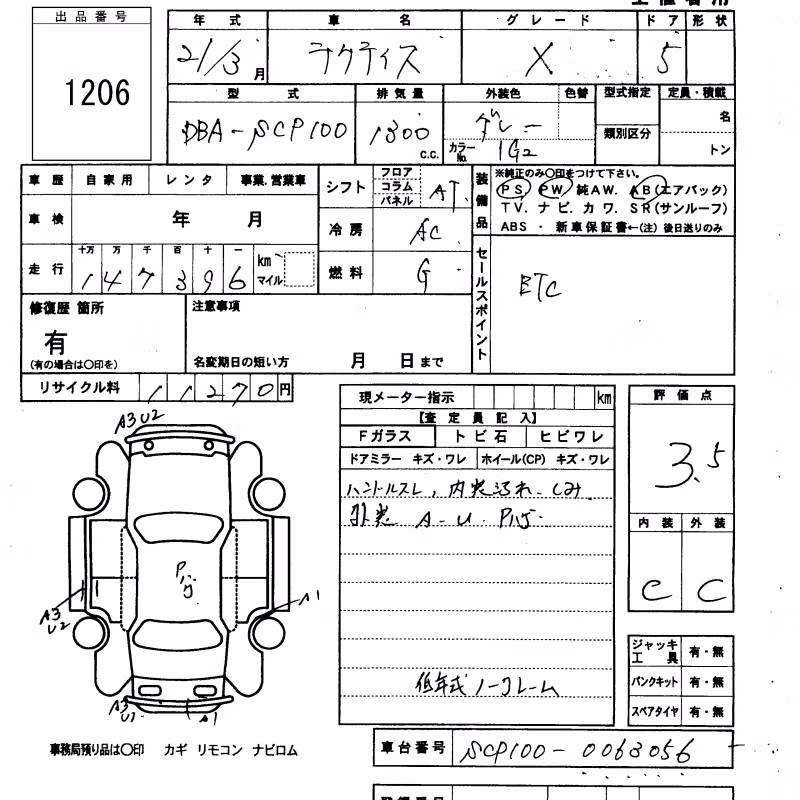 出品番号
1206
年式 車名 グレード ドア 形状
21/3月 ラクティス X 5
型式 排気量 外装色 色替 型式指定 定員・積載
DBA-SCP100 1300c.c. グレー 名
カラーNo. 1G2 類別区分 トン
車歴 自家用 レンタ 事業.営業車
車検 年 月
走行 十万 万 千 百 十 一
147396 km マイル
シフト フロア コラム パネル AT
冷房 AC
燃料 G
装備品
※純正のみ○印をつけて下さい。
PS PW 純AW. AB(エアバック)
TV. ナビ. カワ. SR(サンルーフ)
ABS ・ 新車保証書←(注) 後日送りのみ
セールスポイント
ETC
修復歴 箇所
有
(有の場合は○印を)
注意事項
名変期日の短い方 月 日まで
リサイクル料 11270円
現メーター指示 km
【査定員記入】
Fガラス トビ石 ヒビワレ
ドアミラー キズ・ワレ ホイール(CP) キズ・ワレ
ハンドルスレ、内装汚れ.しみ.
外装 A-U. Pハゲ.
低年式ノークレーム
評価点
3.5
内装 外装
C C
ジャッキ工具 有・無
パンクキット 有・無
スペアタイヤ 有・無
A3 U2
Pハゲ
A3 U2
A1
A3 U1
A1
事務局預り品は○印 カギ リモコン ナビロム
車台番号 SCP100-0063056